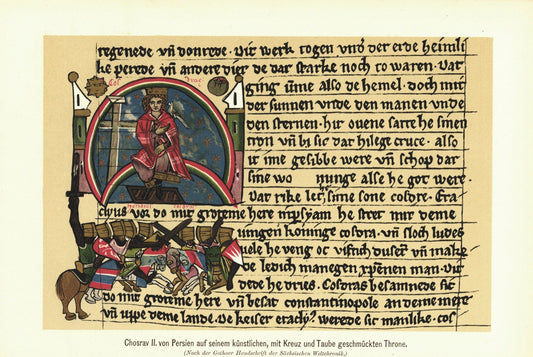 regenede vn̄ donrede. Dit werk togen vnd' der erde heimli
ke perede vn̄ andere dier de dar starke noch to waren. Dat
ging ūme also de hemel. doch mit
der sunnen vnde den manen vnde
den sternen. hir ouene satte he sinen
tron vn̄ bi sic dar hilege cruce. also
it ime gesibbe were vn̄ schop dar
sine wo nunge alse he got were.
Dat rike let sime sone cosdre. Era
clius vor do mit groteme here in psyam he street mit deme
iungen koninge cosdra. vn̄ sloch ludes
uele he veng oc viftich dusent vn̄ make
de ledich manegen xpenen man. Dit
dede he dries. Cosdras besamnede sic
do mit groteme here vn̄ besat constantinopole an deme mere
vn̄ uppe deme lande. De keiser eracli' werede sic manlike. cos
Chosrav II. von Persien auf seinem künstlichen, mit Kreuz und Taube geschmückten Throne.
(Nach der Gothaer Handschrift der Sächsischen Weltchronik.)